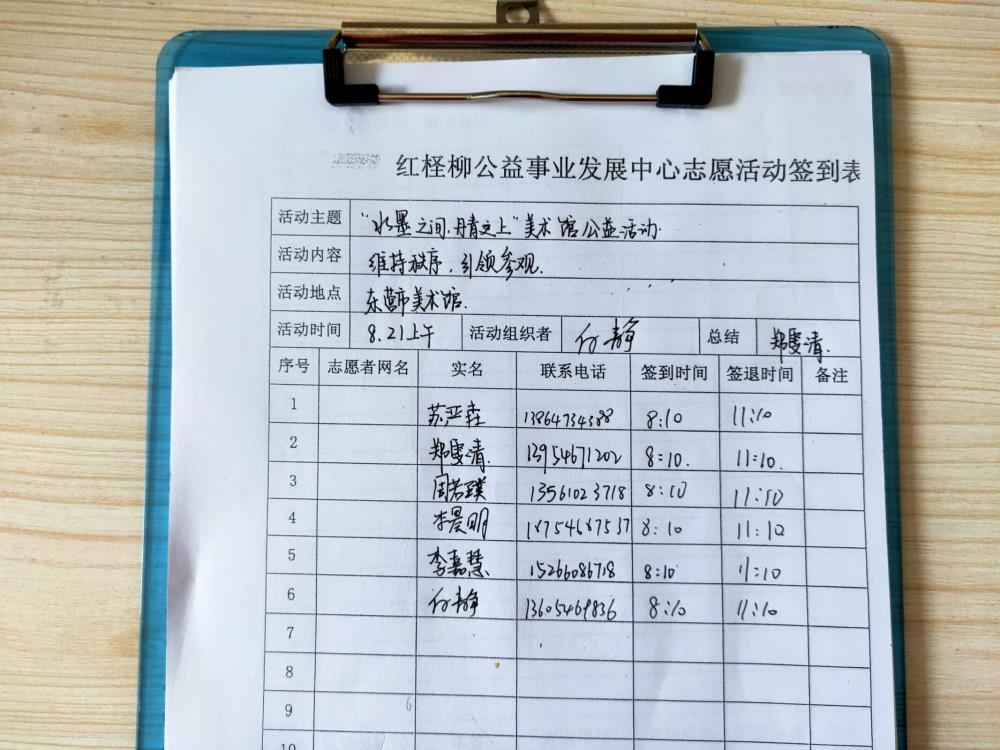 红柽柳公益事业发展中心志愿活动签到表
活动主题 “水墨之间.丹青之上”美术馆公益活动.
活动内容 维持秩序,引领参观.
活动地点 东营市美术馆.
活动时间 8.21上午 活动组织者 付静 总结 郑雯清.
序号 志愿者网名 实名 联系电话 签到时间 签退时间 备注
1 苏严森 13864734388 8:10 11:10
2 郑雯清. 13954671202 8:10. 11:10.
3 周若璞 13561023718 8:10 11:10
4 李晨明 18754687537 8:10 11:10
5 李嘉慧 15266086718 8:10 11:10
6 付静 13605469836 8:10 11:10
7
8
9
10